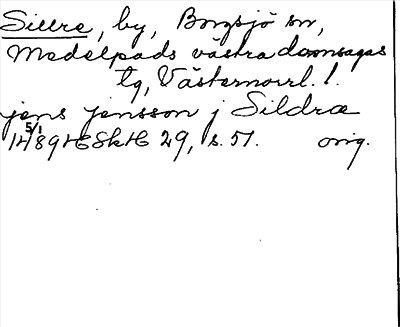 Sillre, by, Borgsjö sn,
Medelpads västra domsagas
tg, Västernorrl. l.
jens jensson j Sildræ
5/1
1489 HSH 29, s. 51. orig.